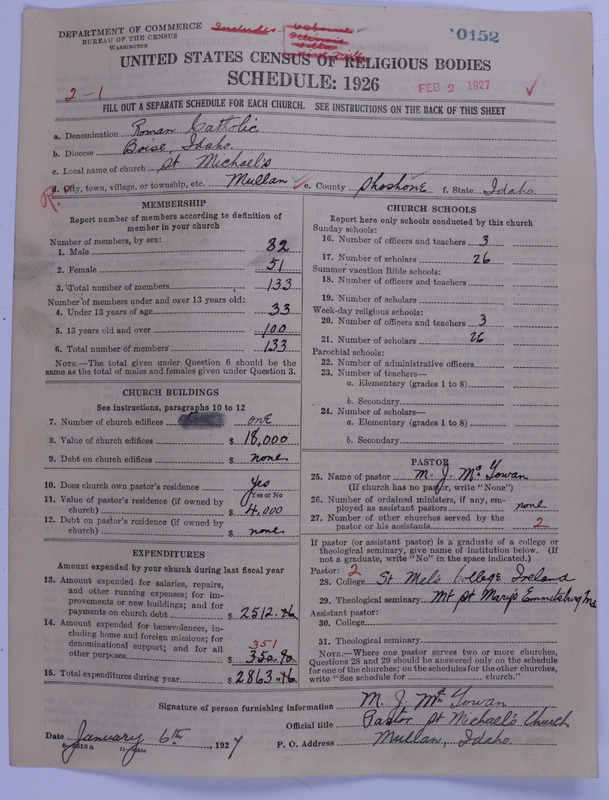 DEPARTMENT OF COMMERCE
BUREAU OF THE CENSUS
WASHINGTON
Includes
0152
UNITED STATES CENSUS OF RELIGIOUS BODIES
SCHEDULE: 1926
FEB 2 1927
2-1
FILL OUT A SEPARATE SCHEDULE FOR EACH CHURCH. SEE INSTRUCTIONS ON THE BACK OF THIS SHEET
a. Denomination Roman Catholic
b. Diocese Boise, Idaho.
c. Local name of church St Michael's
d. City, town, village, or township, etc. Mullan e. County Shoshone f. State Idaho.
MEMBERSHIP
Report number of members according to definition of
member in your church
Number of members, by sex:
1. Male 82
2. Female 51
3. Total number of members 133
Number of members under and over 13 years old:
4. Under 13 years of age 33
5. 13 years old and over 100
6. Total number of members 133
NOTE.—The total given under Question 6 should be the
same as the total of males and females given under Question 3.
CHURCH BUILDINGS
See instructions, paragraphs 10 to 12
7. Number of church edifices one
8. Value of church edifices $ 18,000
9. Debt on church edifices $ none
10. Does church own pastor's residence yes
Yes or No
11. Value of pastor's residence (if owned by
church) $ 4,000
12. Debt on pastor's residence (if owned by
church) $ none
EXPENDITURES
Amount expended by your church during last fiscal year
13. Amount expended for salaries, repairs,
and other running expenses; for im-
provements or new buildings; and for
payments on church debt $ 2512.
14. Amount expended for benevolences, in-
cluding home and foreign missions; for
denominational support; and for all
other purposes $ 351
350.90
15. Total expenditures during year $ 2863.
CHURCH SCHOOLS
Report here only schools conducted by this church
Sunday schools:
16. Number of officers and teachers 3
17. Number of scholars 26
Summer vacation Bible schools:
18. Number of officers and teachers
19. Number of scholars
Week-day religious schools:
20. Number of officers and teachers 3
21. Number of scholars 26
Parochial schools:
22. Number of administrative officers
23. Number of teachers—
a. Elementary (grades 1 to 8)
b. Secondary
24. Number of scholars—
a. Elementary (grades 1 to 8)
b. Secondary
PASTOR
25. Name of pastor M. J. McGowan
(If church has no pastor, write "None")
26. Number of ordained ministers, if any, em-
ployed as assistant pastors none
27. Number of other churches served by the
pastor or his assistants 2
If pastor (or assistant pastor) is a graduate of a college or
theological seminary, give name of institution below. (If
not a graduate, write "No" in the space indicated.)
Pastor: 2
28. College St Mel's College Ireland
29. Theological seminary Mt St Mary's Emmitsburg Md
Assistant pastor:
30. College
31. Theological seminary
NOTE.—Where one pastor serves two or more churches,
Questions 28 and 29 should be answered only on the schedule
for one of the churches; on the schedules for the other churches,
write "See schedule for church."
Signature of person furnishing information M. J. McGowan
Official title Pastor St Michael's Church
Date January 6th, 1927 P. O. Address Mullan, Idaho.